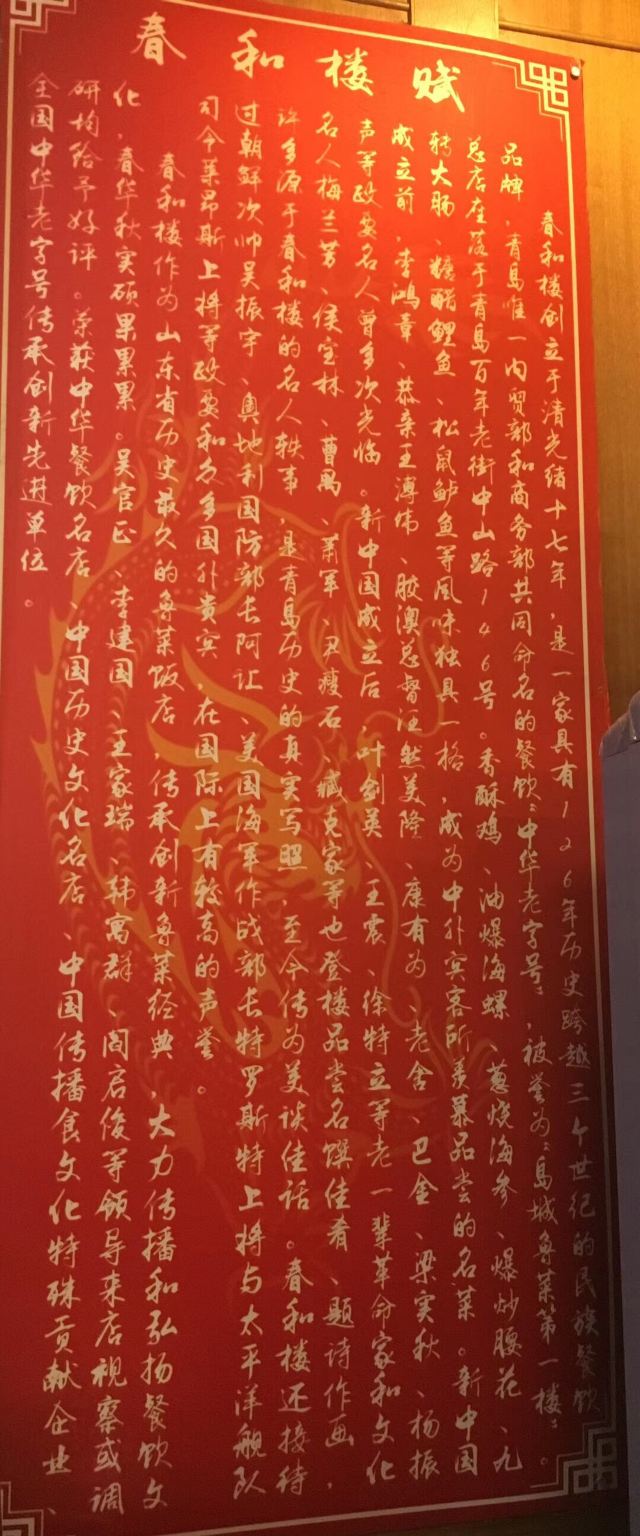 春和楼赋
春和楼创立于清光绪十七年，是一家具有126年历史跨越三个世纪的民族餐饮
品牌，青岛唯一内贸部和商务部共同命名的餐饮“中华老字号”，被誉为“岛城鲁菜第一楼”。
总店座落于青岛百年老街中山路146号。香酥鸡、油爆海螺、葱烧海参、爆炒腰花、九
转大肠、糖醋鲤鱼、松鼠鲈鱼等风味独具一格，成为中外宾客所羡慕品尝的名菜。新中国
成立前，李鸿章、恭亲王溥伟、胶澳总督汪然美隆、康有为、老舍、巴金、梁实秋、杨振
声等政要名人曾多次光临。新中国成立后，叶剑英、王震、徐特立等老一辈革命家和文化
名人梅兰芳、侯宝林、曹禺、萧军、尹瘦石、臧克家等也登楼品尝名馔佳肴、题诗作画，
许多源于春和楼的名人轶事，是青岛历史的真实写照，至今传为美谈佳话。春和楼还接待
过朝鲜次帅吴振宇、奥地利国防部长阿让、美国海军作战部长特罗斯特上将与太平洋舰队
司令莱昂斯上将等政要和众多国外贵宾，在国际上有较高的声誉。
春和楼作为山东省历史最久的鲁菜饭店，传承创新鲁菜经典，大力传播和弘扬餐饮文
化，春华秋实硕果累累。吴官正、李建国、王家瑞、韩寓群、阎启俊等领导来店视察或调
研均给予好评。荣获中华餐饮名店、中国历史文化名店、中国传播食文化特殊贡献企业、
全国中华老字号传承创新先进单位。